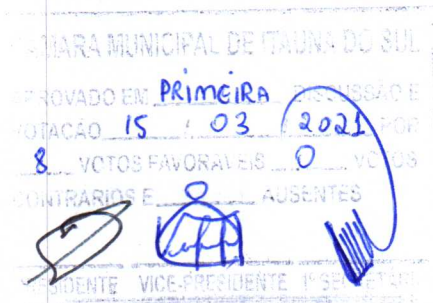 CÂMARA MUNICIPAL DE ITAÚNA DO SUL
APROVADO EM PRIMEIRA DISCUSSÃO E
VOTAÇÃO 15 / 03 / 2021 POR
8 VOTOS FAVORAVEIS 0 VOTOS
CONTRARIOS E AUSENTES
PRESIDENTE VICE-PRESIDENTE 1º SECRETÁRIO